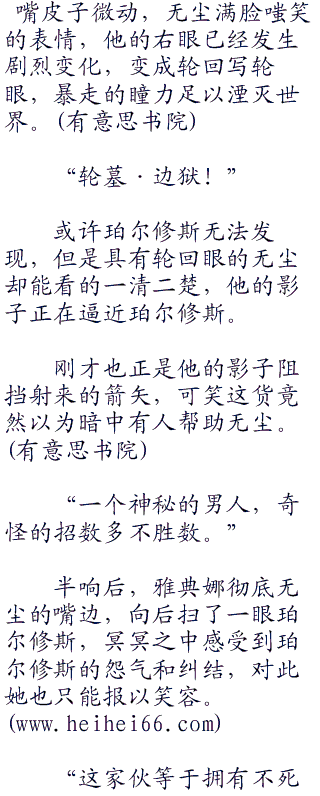 嘴皮子微动，无尘满脸嗤笑
的表情，他的右眼已经发生
剧烈变化，变成轮回写轮
眼，暴走的瞳力足以湮灭世
界。(有意思书院)
“轮墓·边狱！”
或许珀尔修斯无法发
现，但是具有轮回眼的无尘
却能看的一清二楚，他的影
子正在逼近珀尔修斯。
刚才也正是他的影子阻
挡射来的箭矢，可笑这货竟
然以为暗中有人帮助无尘。
(有意思书院)
“一个神秘的男人，奇
怪的招数多不胜数。”
半响后，雅典娜彻底无
尘的嘴边，向后扫了一眼珀
尔修斯，冥冥之中感受到珀
尔修斯的怨气和纠结，对此
她也只能报以笑容。
(www.heihei66.com)
“这家伙等于拥有不死